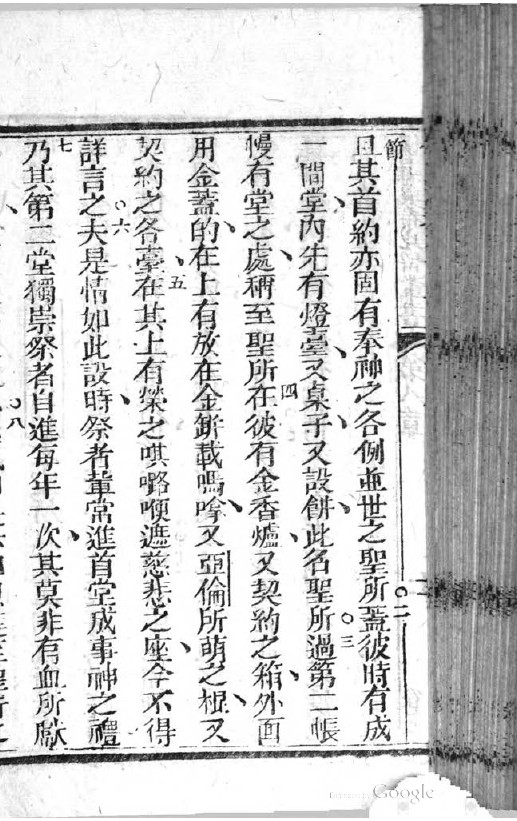 節
且其首約亦固有奉神之各例並世之聖所蓋彼時有成
二
一間堂內先有燈臺又桌子又設餅此名聖所過第二帳
三
幔有堂之處稱至聖所在彼有金香爐又契約之箱外面
四
用金蓋的在上有放在金缾載嗎嗱又亞倫所萌之棍又
五
契約之各臺在其上有榮之㖵𡀔㖽遮慈悲之座今不得
詳言之夫是情如此設時祭者輩常進首堂成事神之禮
六
乃其第二堂獨崇祭者自進每年一次其莫非有血所獻
七
八
Google